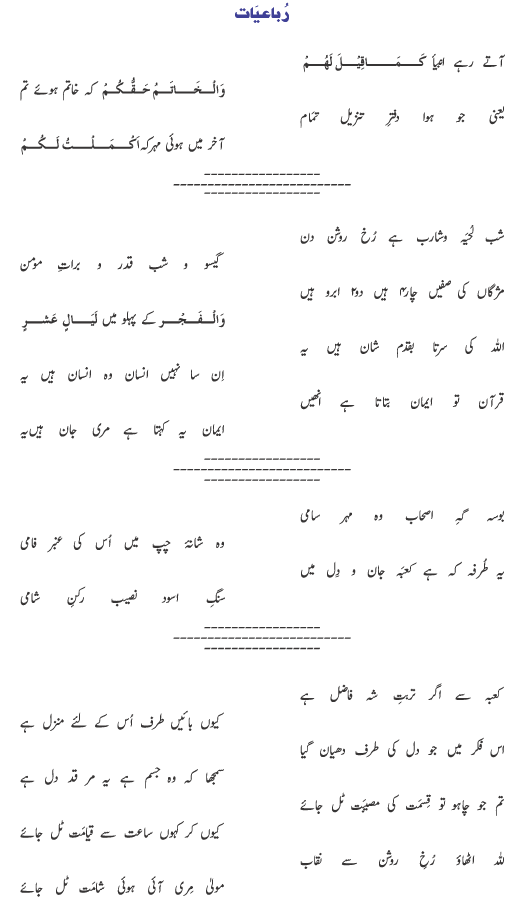 رُباعیّات
آتے رہے انبیا کَمَا قِیْلَ لَھُمْ
وَالْخَاتَمُ حَقُّکُمْ کہ خاتم ہوئے تم
یعنی جو ہوا دفترِ تنزیل تمام
آخر میں ہوئی مہر کہ اَکْمَلْتُ لَکُمْ
شب لحْیَہ وشارب ہے رُخِ روشن دن
گیسو و شب قدر و براتِ مومن
مژگاں کی صفیں چار۴ ہیں دو۲ ابرو ہیں
وَالْفَجْر کے پہلو میں لَیَالٍ عَشْرٍ
اللہ کی سرتا بقدم شان ہیں یہ
اِن سا نہیں انسان وہ انسان ہیں یہ
قرآن تو ایمان بتاتا ہے انھیں
ایمان یہ کہتا ہے مری جان ہیں یہ
بوسہ گہِ اصحاب وہ مہر سامی
وہ شانۂ چپ میں اُس کی عنبر فامی
یہ طُرفہ کہ ہے کعبہ جان و دِل میں
سنگِ اسود نصیب رکنِ شامی
کعبہ سے اگر تربتِ شہ فاضل ہے
کیوں بائیں طرف اُس کے لئے منزل ہے
اس فکر میں جو دل کی طرف دھیان گیا
سمجھا کہ وہ جسم ہے یہ مر قد دل ہے
تم جو چاہو تو قِسمَت کی مصیبت ٹل جائے
کیوں کر کہوں ساعت سے قیامَت ٹل جائے
للہ اٹھاؤ رُخِ روشن سے نقاب
مولیٰ مِری آئی ہوئی شامَت ٹل جائے